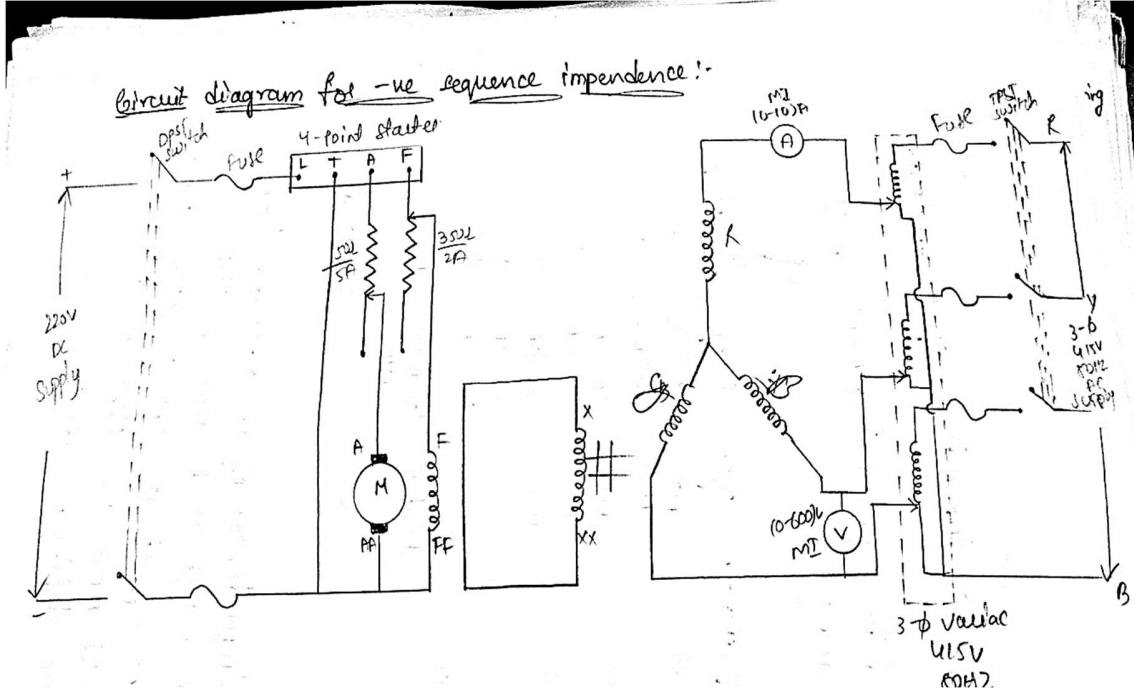 Circuit diagram for -ve sequence impendence:-
ing
DPST
switch
Fuse
4-point starter
L T A F
+
50Ω
5A
350Ω
2A
220V
DC
supply
A
M
AA
F
FF
-
X
XX
MI
(0-10)A
A
R
(0-600)V
MI
V
Fuse
TPST
switch
R
Y
3-ϕ
415V
50HZ
AC
supply
B
3-ϕ variac
415V
50HZ